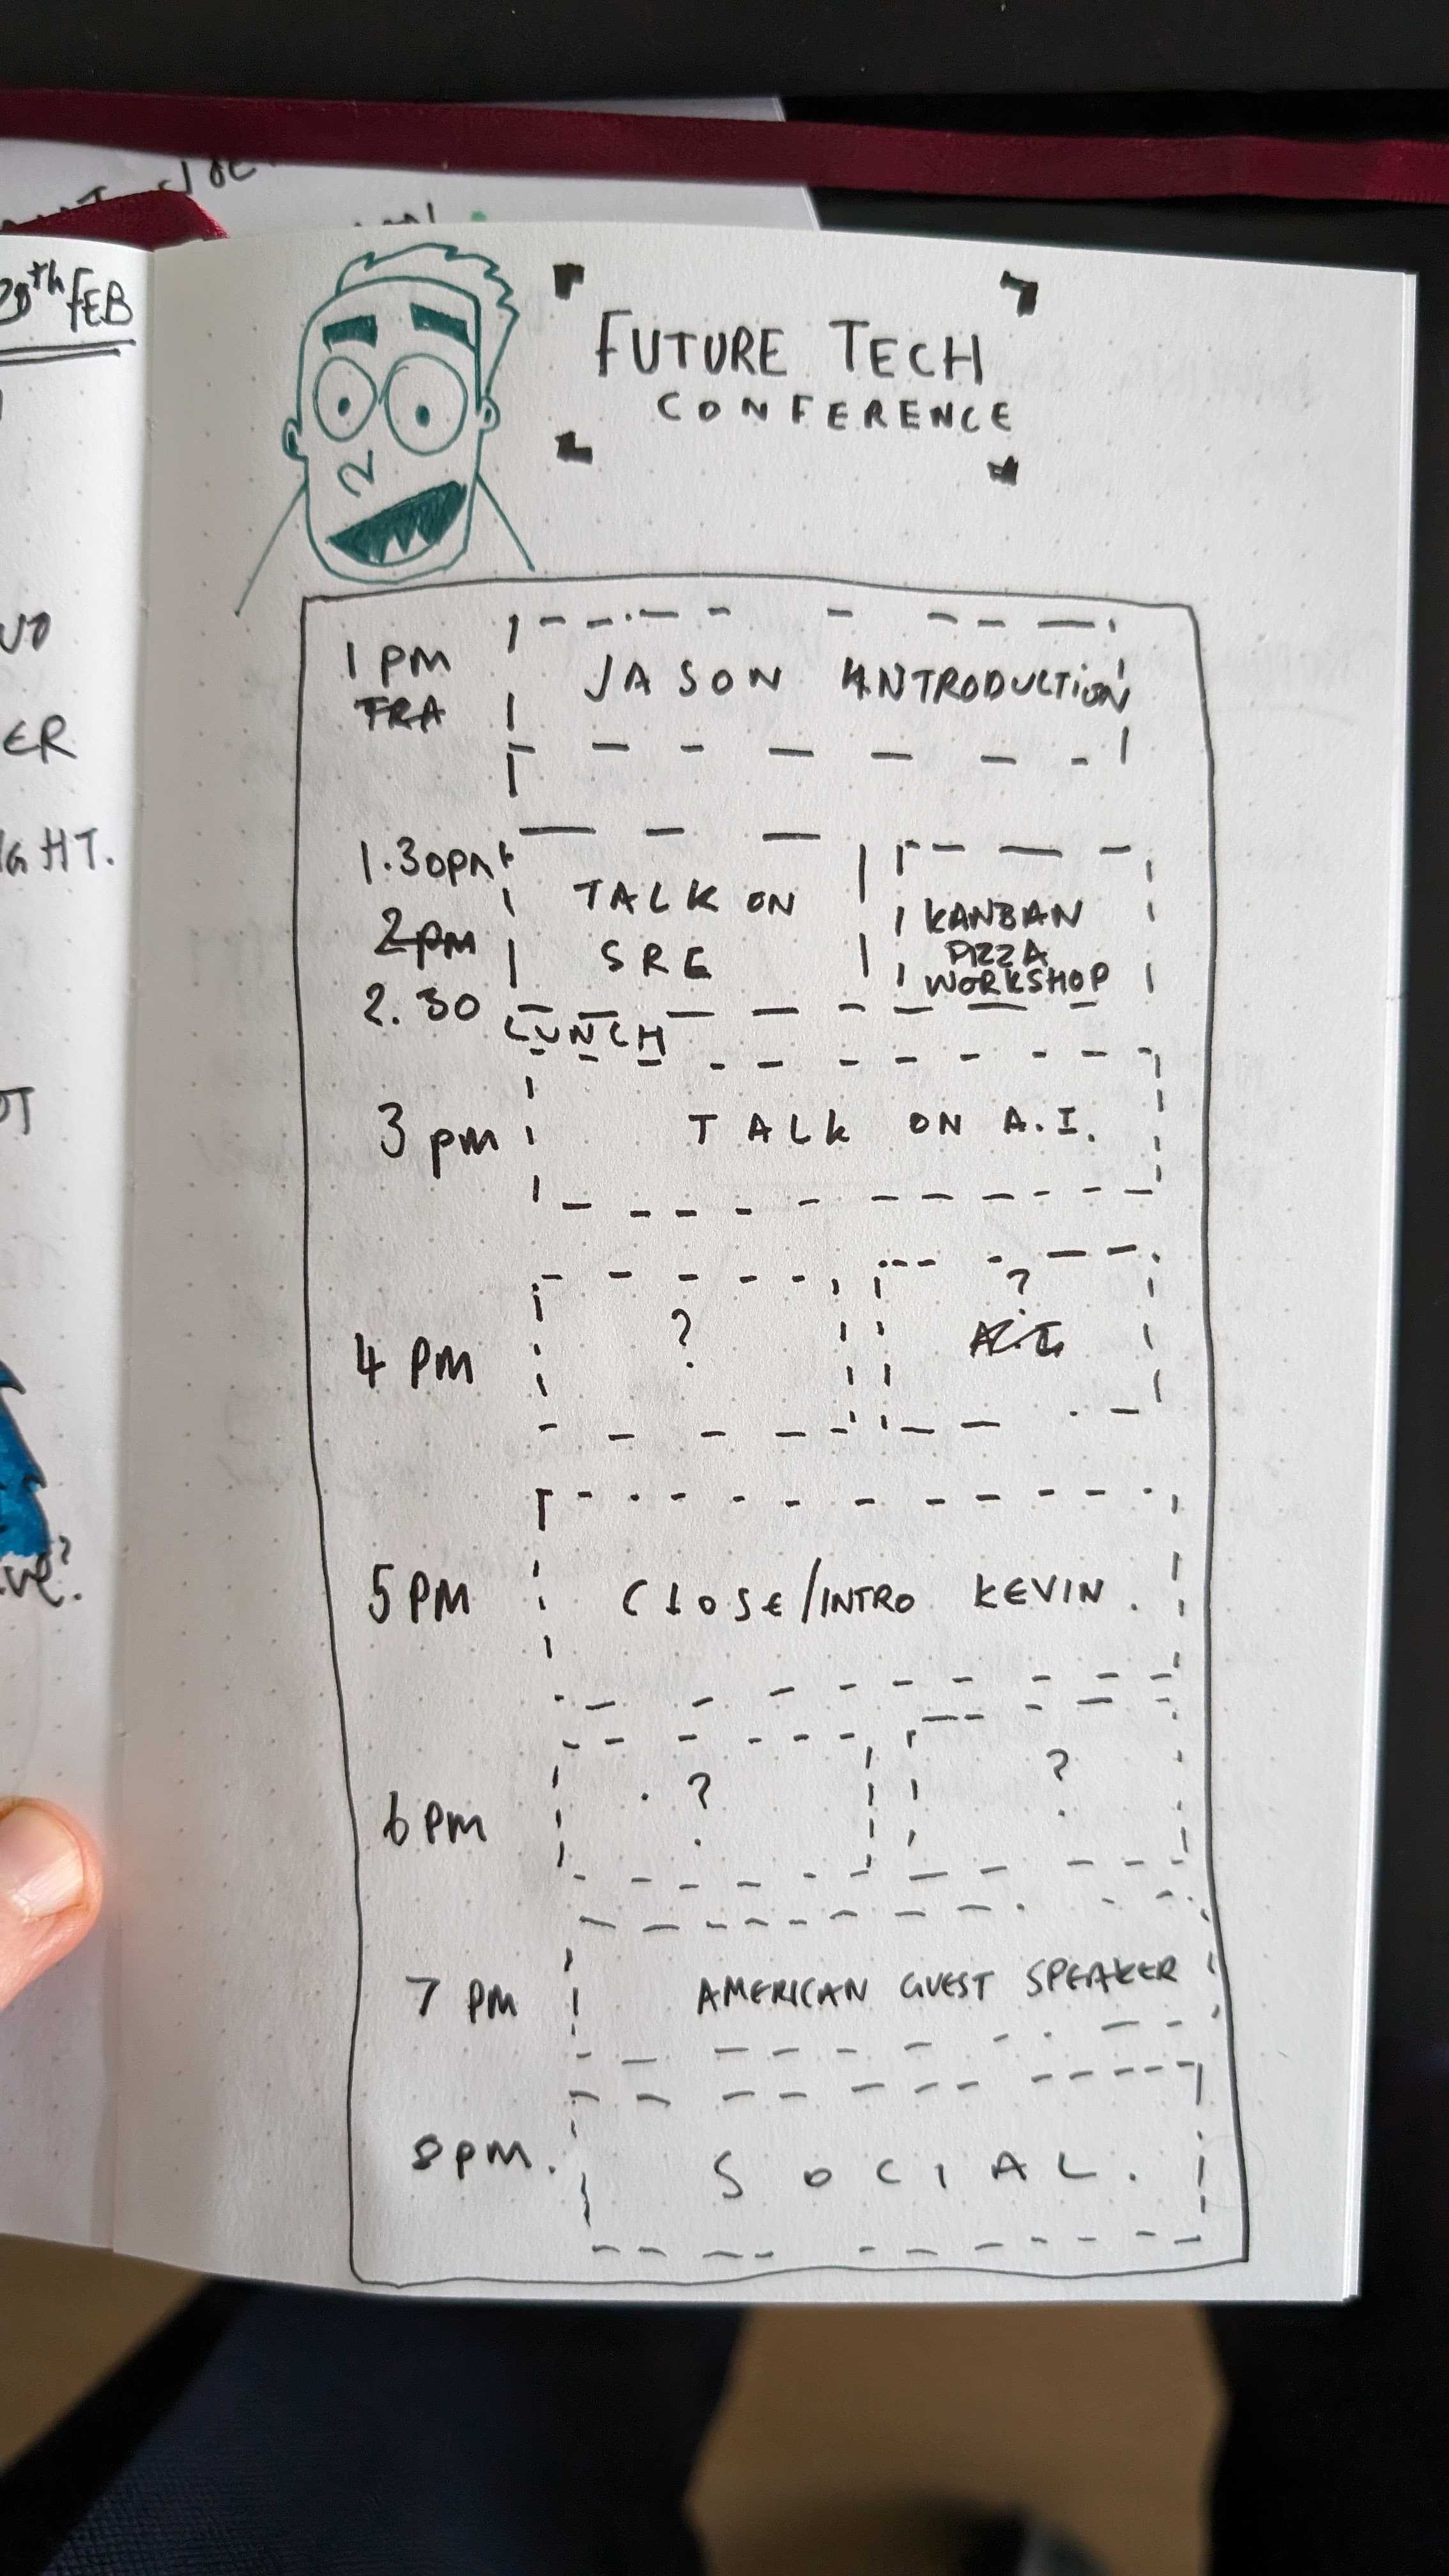 20th FEB
ER
GHT.
FUTURE TECH
CONFERENCE
1 PM
FRA
JASON INTRODUCTION
1.30pm
2pm
2.30
TALK ON
SRE
KANBAN
PIZZA
WORKSHOP
LUNCH
3 pm
TALK ON A.I.
4 PM
?
?
A.I.
5 PM
CLOSE/INTRO KEVIN.
6 PM
?
?
7 PM
AMERICAN GUEST SPEAKER
8 PM.
SOCIAL.